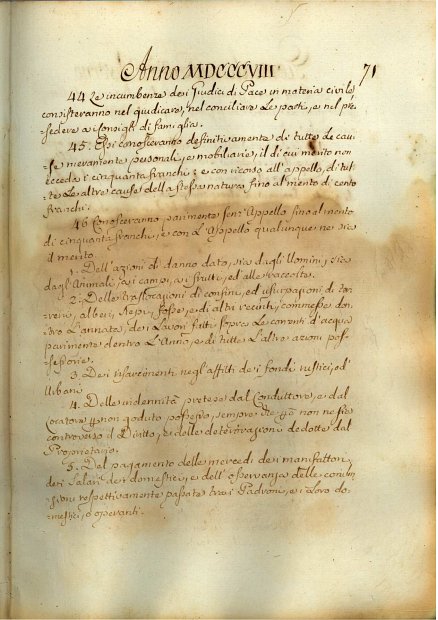 Anno MDCCCVIII 71
44. Le incumbenze dei Giudici di Pace in materia civile
consisteranno nel giudicare, nel conciliare le parti, e nel pre-
sedere a Consigli di famiglia.
45. Essi conosceranno definitivamente di tutte le cau-
se meramente personali, e mobiliarie, il di cui merito non
ecceda i cinquanta franchi; e con ricorso all'appello, di tut-
te le altre cause della stessa natura fino al merito di cento
franchi.
46 Conosceranno parimente senz'Appello fino al merito
di cinquanta franchi, e con l'Appello qualunque ne sia
il merito.
1. Dell'azioni di danno dato, sia dagli Uomini, sia
dagli Animali, ai campi, ai frutti, ed alle raccolte.
2. Delle traslocazioni di confini, ed usurpazioni di ter-
reni, alberi, siepi, fosse, e di altri recinti, commesse den-
tro l'annata, dei lavori fatti sopra le correnti d'acqua
parimente dentro l'Anno, e di tutte l'altre azioni pos-
sessorie.
3. Dei risarcimenti negli affitti dei fondi rustici, ed
Urbani
4. Delle indennità pretese dal Conduttore, e dal
non goduto possesso, sempre che non ne sia
controverso il Diritto, e delle deteriorazioni dedotte dal
Proprietario.
5. Del pagamento delle mercedi dei manifattori,
dei Salari dei domestici, e dell'osservanza delle condi-
zioni respettivamente passate tra i Padroni, e i loro do-
mestici, o operanti.